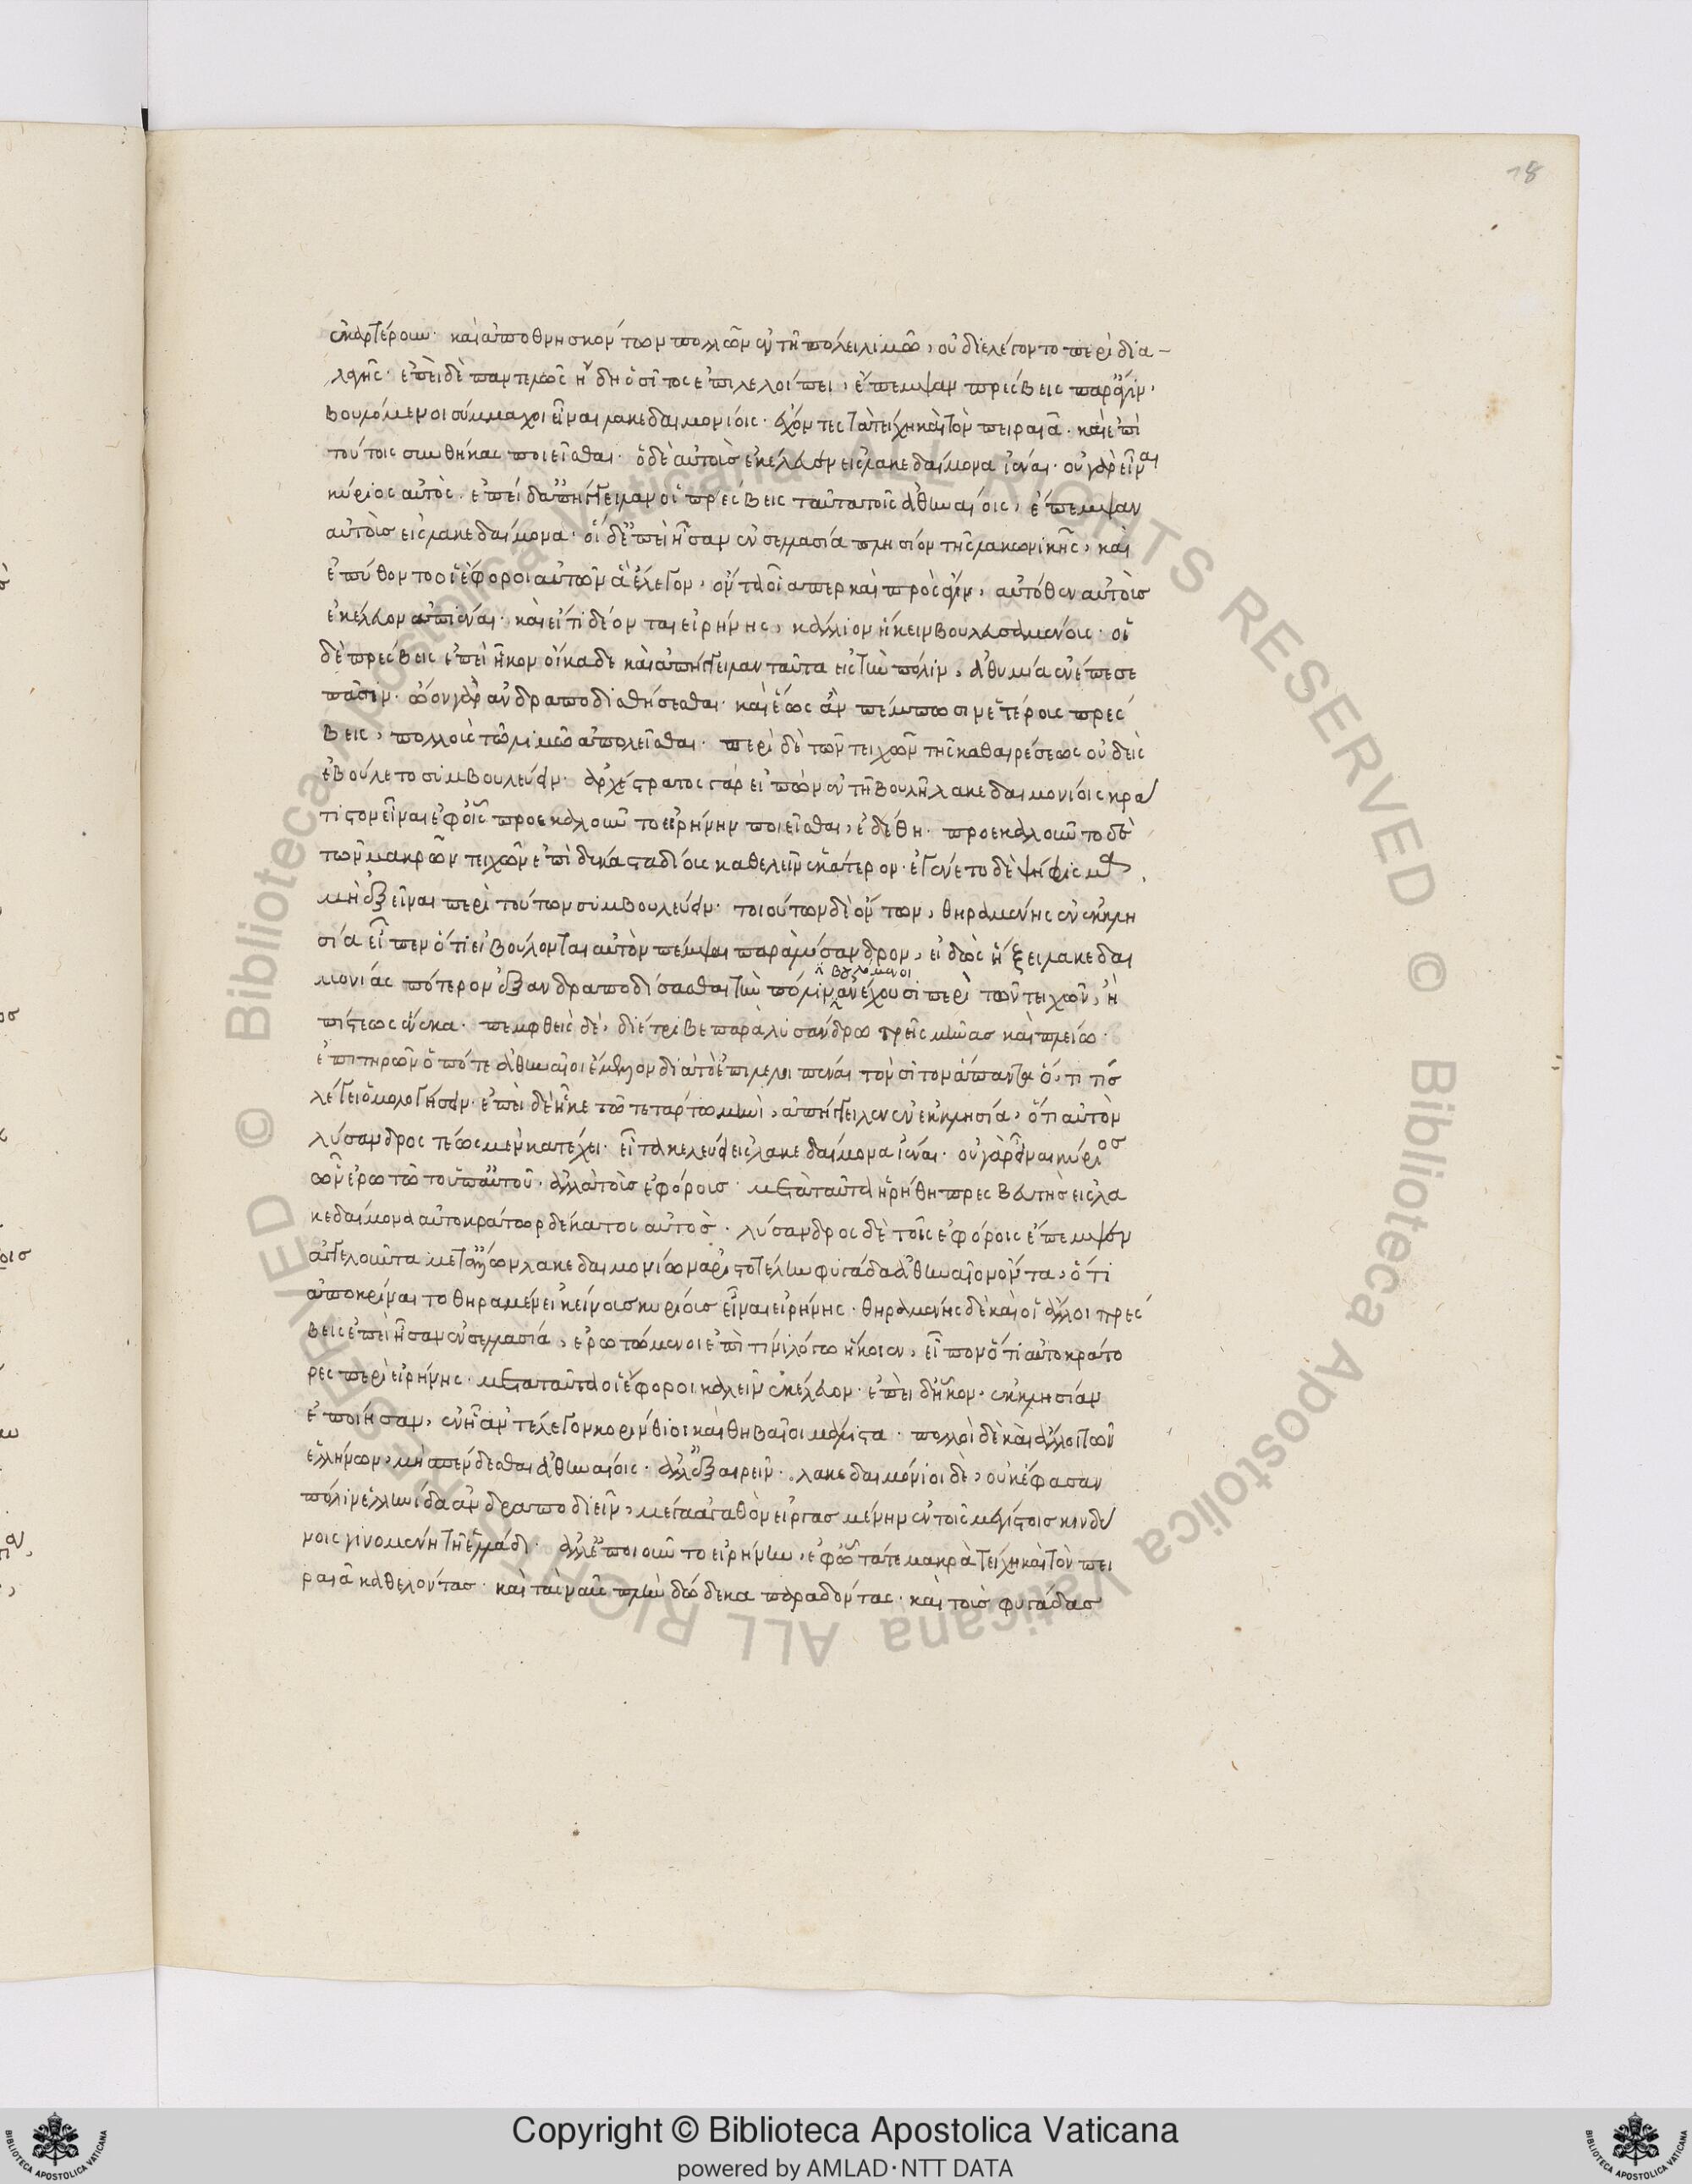 18
ἐκαρτέρουν· καὶ ἀποθνησκόντων πολλῶν ἐν τῇ πόλει λιμῷ, οὐ διελέγοντο περὶ δια-
λαγῆς· ἐπεὶ δὲ παντελῶς ἤδη ὁ σῖτος ἐπιλελοίπει, ἔπεμψαν πρέσβεις παρ' ἆγιν,
βουλόμενοι σύμμαχοι εἶναι λακεδαιμονίοις· ἔχοντες τὰ τείχη καὶ τὸν πειραιᾶ· καὶ ἐπὶ
τούτοις συνθήκας ποιεῖσθαι· ὁ δὲ αὐτοὺς ἐκέλευεν εἰς λακεδαίμονα ἰέναι· οὐ γὰρ εἶναι
κύριος αὐτός· ἐπεὶ δ' ἀπήγγειλαν οἱ πρέσβεις ταῦτα τοῖς ἀθηναίοις, ἔπεμψαν
αὐτοὺς εἰς λακεδαίμονα· οἱ δ' ἐπεὶ ἦσαν ἐν σελλασίᾳ πλησίον τῆς λακωνικῆς, καὶ
ἐπύθοντο οἱ ἔφοροι αὐτῶν ἃ ἔλεγον, ὄντα οἷάπερ καὶ πρὸς ἆγιν, αὐτόθεν αὐτοὺς
ἐκέλευον ἀπιέναι· καὶ εἴ τι δέονται εἰρήνης, κάλλιον ἥκειν βουλευσαμένους· οἱ
δὲ πρέσβεις ἐπεὶ ἧκον οἴκαδε καὶ ἀπήγγειλαν ταῦτα εἰς τὴν πόλιν, ἀθυμία ἐνέπεσε
πᾶσιν· ᾤοντο γὰρ ἀνδραποδισθήσεσθαι· καὶ ἕως ἂν πέμπωσιν ἑτέρους πρέσ
βεις, πολλοὺς τῷ λιμῷ ἀπολεῖσθαι· περὶ δὲ τῶν τειχῶν τῆς καθαιρέσεως οὐδεὶς
ἐβούλετο συμβουλεύειν· ἀρχέστρατος γὰρ εἰπὼν ἐν τῇ βουλῇ λακεδαιμονίοις κρά
τιστον εἶναι ἐφ' οἷς προεκαλοῦντο εἰρήνην ποιεῖσθαι, ἐδέθη· προεκαλοῦντο δὲ
τῶν μακρῶν τειχῶν ἐπὶ δέκα σταδίους καθελεῖν ἑκάτερον· ἐγένετο δὲ ψήφισμα,
μὴ ἐξεῖναι περὶ τούτων συμβουλεύειν· τοιούτων δὲ ὄντων, θηραμένης ἐν ἐκκλη
σίᾳ εἶπεν ὅτι εἰ βούλονται αὐτὸν πέμψαι παρὰ λύσανδρον, εἰδὼς ἥξει λακεδαι
μονίους πότερον ἐξανδραποδίσασθαι τὴν πόλιν ἢ βουλόμενοι ἀντέχουσι περὶ τῶν τειχῶν, ἢ
πίστεως ἕνεκα· πεμφθεὶς δὲ, διέτριβε παρὰ λυσάνδρῳ τρεῖς μῆνας καὶ πλείω·
ἐπιτηρῶν ὁπότε ἀθηναῖοι ἔμελλον διὰ τὸ ἐπιλελοιπέναι τὸν σῖτον ἅπαντα ὅ, τι τις
λέγει ὁμολογήσειν· ἐπεὶ δὲ ἧκε τῷ τετάρτῳ μηνὶ, ἀπήγγειλεν ἐν ἐκκλησίᾳ, ὅτι αὐτὸν
λύσανδρος τέως μὲν κατέχει· εἶτα κελεύει εἰς λακεδαίμονα ἰέναι· οὐ γὰρ εἶναι κύριος
ὧν ἐρωτῷτο ὑπ' αὐτοῦ· ἀλλὰ τοὺς ἐφόρους· μετὰ ταῦτα ᾑρήθη πρεσβευτὴς εἰς λα
κεδαίμονα αὐτοκράτωρ δέκατος αὐτός· λύσανδρος δὲ τοῖς ἐφόροις ἔπεμψεν
ἀγγελοῦντα μετ' ἄλλων λακεδαιμονίων ἀριστοτέλην φυγάδα ἀθηναῖον ὄντα, ὅτι
ἀποκρίναιτο θηραμένει κείνους κυρίους εἶναι εἰρήνης· θηραμένης δὲ καὶ οἱ ἄλλοι πρέσ
βεις ἐπεὶ ἦσαν ἐν σελλασίᾳ, ἐρωτώμενοι ἐπὶ τίνι λόγῳ ἥκοιεν, εἶπον ὅτι αὐτοκράτο
ρες περὶ εἰρήνης· μετὰ ταῦτα οἱ ἔφοροι καλεῖν ἐκέλευον· ἐπεὶ δ' ἧκον, ἐκκλησίαν
ἐποίησαν, ἐν ᾗ ἀντέλεγον κορίνθιοι καὶ θηβαῖοι μάλιστα· πολλοὶ δὲ καὶ ἄλλοι τῶν
ἑλλήνων, μὴ σπένδεσθαι ἀθηναίοις· ἀλλ' ἐξαιρεῖν· λακεδαιμόνιοι δὲ, οὐκ ἔφασαν
πόλιν ἑλληνίδα ἀνδραποδιεῖν, μέγα ἀγαθὸν εἰργασμένην ἐν τοῖς μεγίστοις κινδύ
νοις γινομένη τῇ ἑλλάδι· ἀλλ' ἐποιοῦντο εἰρήνην, ἐφ' ᾧ τά τε μακρὰ τείχη καὶ τὸν πει
ραιᾶ καθελόντας· καὶ τὰς ναῦς πλὴν δώδεκα παραδόντας· καὶ τοὺς φυγάδας
Copyright © Biblioteca Apostolica Vaticana
powered by AMLAD·NTT DATA